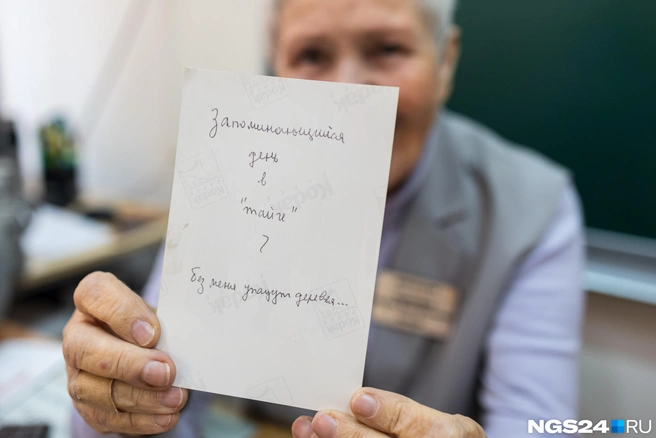 Запоминающийся
день
в
"тайге"
7
без меня упадут деревья...
Kodak
NGS24.RU